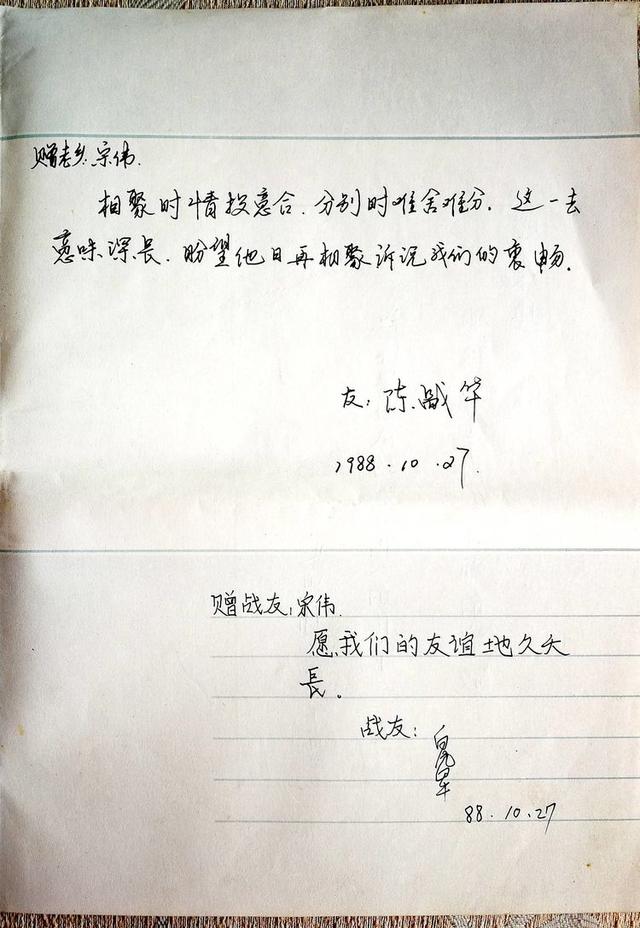 赠老乡:宗伟.
相聚时情投意合.分别时难舍难分.这一去
意味深长.盼望他日再相聚诉说我们的衷畅.
友:陈威华
1988.10.27.
赠战友:宗伟.
愿我们的友谊地久天
長。
战友:
88.10.27